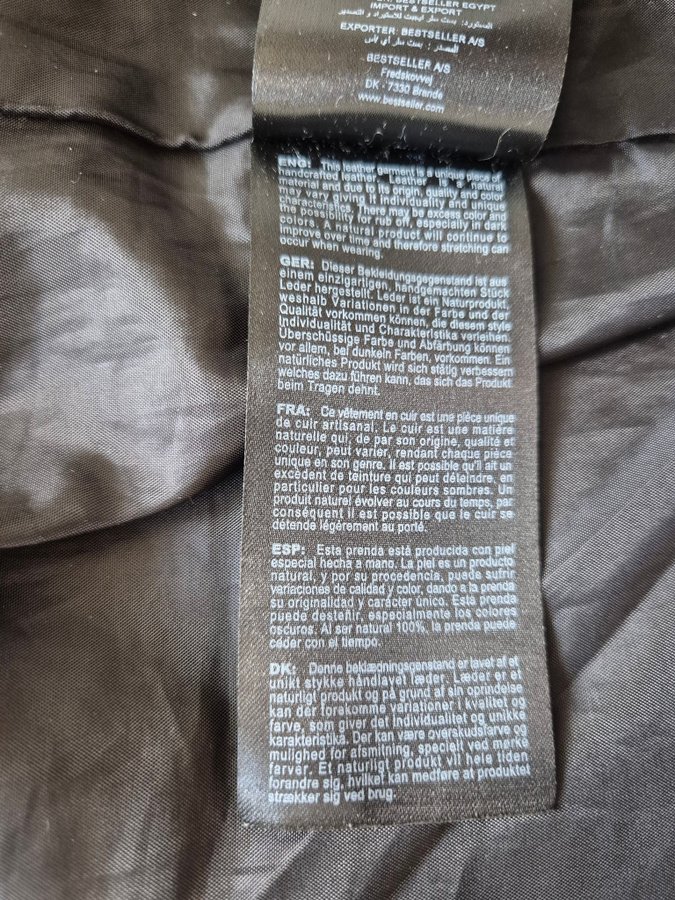 BESTSELLER EGYPT
IMPORT & EXPORT
المستورد: بست سلر ايجبت للاستيراد و التصدير
EXPORTER: BESTSELLER A/S
المصدر: بست سلر أي/أس
BESTSELLER A/S
Fredskovvej
DK - 7330 Brande
www.bestseller.com
ENG: This leather garment is a unique piece of
handcrafted leather. Leather is a natural
material and due to its origin, quality and color
may vary giving it individuality and unique
characteristics. There may be excess color and
the possibility for rub off, especially in dark
colors. A natural product will continue to
improve over time and therefore stretching can
occur when wearing.
GER: Dieser Bekleidungsgegenstand ist aus
einem einzigartigen, handgemachten Stück
Leder hergestellt. Leder ist ein Naturprodukt,
weshalb Variationen in der Farbe und der
Qualität vorkommen können, die diesem style
Individualität und Charakteristika verleihen.
Überschüssige Farbe und Abfärbung können
vor allem, bei dunkeln Farben, vorkommen. Ein
natürliches Produkt wird sich stätig verbessern
welches dazu führen kann, das sich das Produkt
beim Tragen dehnt.
FRA: Ce vêtement en cuir est une pièce unique
de cuir artisanal. Le cuir est une matière
naturelle qui, de par son origine, qualité et
couleur, peut varier, rendant chaque pièce
unique en son genre. Il est possible qu'il ait un
excédent de teinture qui peut déteindre, en
particulier pour les couleurs sombres. Un
produit naturel évoluer au cours du temps, par
conséquent il est possible que le cuir se
détende légèrement au porté.
ESP: Esta prenda está producida con piel
especial hecha a mano. La piel es un producto
natural, y por su procedencia, puede sufrir
variaciones de calidad y color, dando a la prenda
su originalidad y carácter único. Esta prenda
puede desteñir, especialmente los colores
oscuros. Al ser natural 100%, la prenda puede
ceder con el tiempo.
DK: Denne beklædningsgenstand er lavet af et
unikt stykke håndlavet læder. Læder er et
naturligt produkt og på grund af sin oprindelse
kan der forekomme variationer i kvalitet og
farve, som giver det individualitet og unikke
karakteristika. Der kan være overskudsfarve og
mulighed for afsmitning, speciell ved mørke
farver. Et naturligt produkt vil hele tiden
forandre sig, hvilket kan medføre at produktet
strækker sig ved brug.